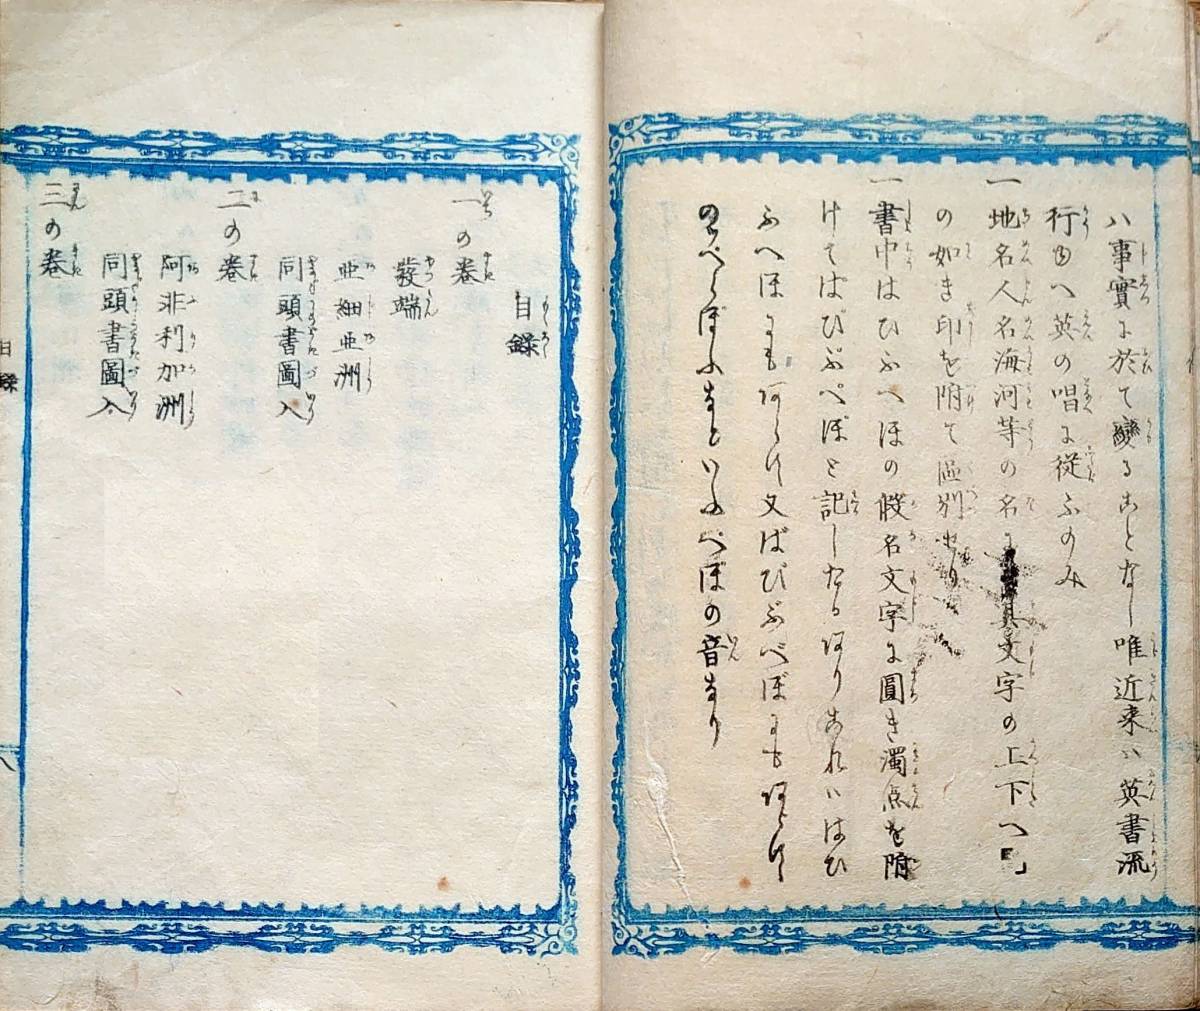 ハ事實に於て變ることなし唯近来ハ英書流
行ゆへ英の唱に從ふのみ
一地名人名海河等の名に其文字の上下へ「」
の如き印を附て區別せり
一書中はひふへほの假名文字に圓き濁点を附
けてはぴぷぺぽと記したるありこれハはひ
ふへほにもあらず又ばびぶべぼにもあらず
のべらぼふなといふべぼの音なり
目録
一の巻
發端
亜細亜洲
同頭書圖入
二の巻
阿非利加洲
同頭書圖入
三の巻
目録
八